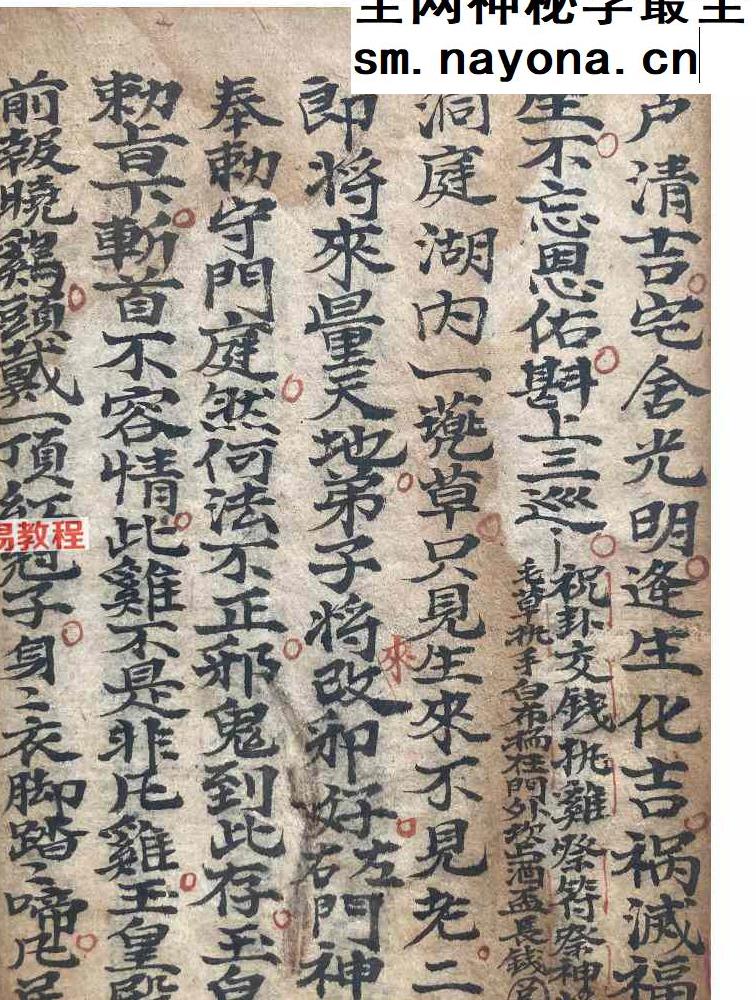 全网神秘学最全
sm.nayona.cn
户清吉宅舍光明逢生化吉祸滅福
生不忘思佑斟上三巡
祝卦交錢执雞祭符祭神
毛草执手白布拴在門外 酒盃長錢
洞庭湖内一蔸草只見生來不見老二
即将來量天地弟子将來改卯好左右門神
奉勅守門庭然何法不正邪鬼到此存玉皇
勅旨下斬首不容情此雞不是非凡雞玉皇殿
前報曉鷄頭戴一頂紅冠子身〻衣脚踏〻啼凡
易教程